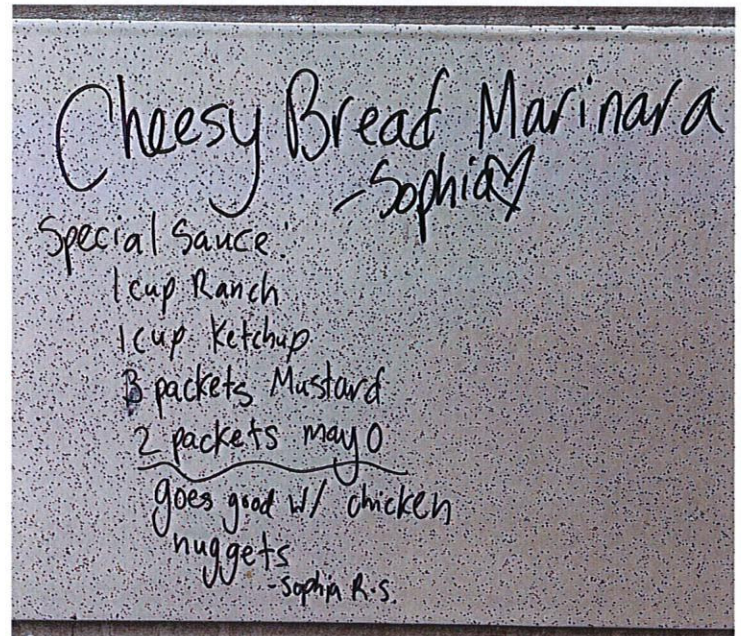 Cheesy Bread Marinara
-Sophia♡
Special Sauce:
1 cup Ranch
1 cup Ketchup
3 packets Mustard
2 packets mayo
goes good w/ chicken
nuggets
-Sophia R.S.